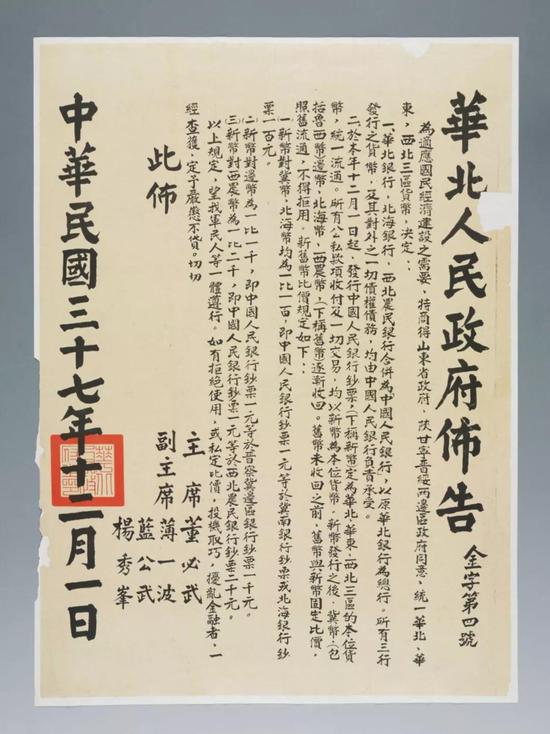 華北人民政府佈告
金字第四號
為適應國民經濟建設之需要,特商得山東省政府,陝甘寧晉綏兩邊區政府同意,統一華北、華
東,西北三區貨幣,決定:
一、華北銀行,北海銀行,西北農民銀行合併為中國人民銀行,以原華北銀行為總行。所有三行
發行之貨幣,及其對外之一切債權債務,均由中國人民銀行負責承受。
二、於本年十二月一日起,發行中國人民銀行鈔票,(下稱新幣)定為華北、華東、西北三區的本位貨
幣,統一流通。所有公私款項收付及一切交易,均以新幣為本位貨幣,新幣發行之後,冀幣(包
括魯西幣)邊幣,北海幣,西農幣,(下稱舊幣)逐漸收回。舊幣未收回之前,舊幣與新幣固定比價,
照舊流通,不得拒用。新舊幣比價規定如下:
㈠新幣對冀幣,北海幣均為一比一百,即中國人民銀行鈔票一元等於冀南銀行鈔票或北海銀行鈔
票一百元。
㈡新幣對邊幣為一比一千,即中國人民銀行鈔票一元等於晉察冀邊區銀行鈔票一千元。
㈢新幣對西農幣為一比二千,即中國人民銀行鈔票一元等於西北農民銀行鈔票二千元。
以上規定,望我軍民人等一體遵行。如有拒絕使用,或私定比價,投機取巧,擾亂金融者,一
經查獲,定予嚴懲不貸。切切
此佈
主席 董必武
副主席 薄一波
藍公武
楊秀峯
中華民國三十七年十二月一日